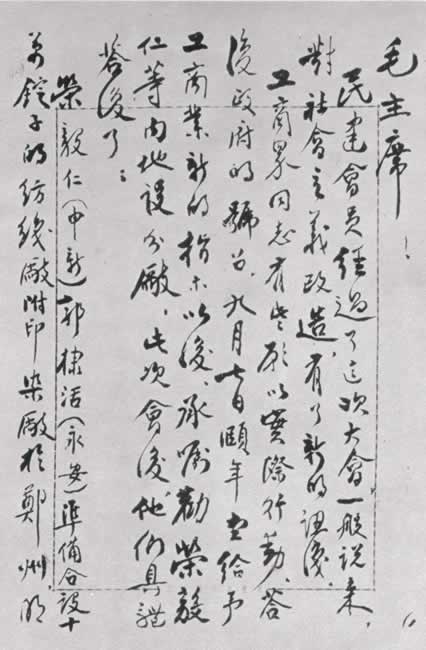 毛主席：
民建會員經過了這次大會，一般說來，
對社會主義改造，有了新的認識，
工商界同志有些願以實際行動，答
復政府的號召，九月七日頤年堂給予
工商業新的指示以後，承囑勸榮毅
仁等內地設分廠，此次會後，他們具體
答復了：
榮毅仁（申新）郭棣活（永安）準備合設十
萬錠子的紡綫廠附印染廠於鄭州